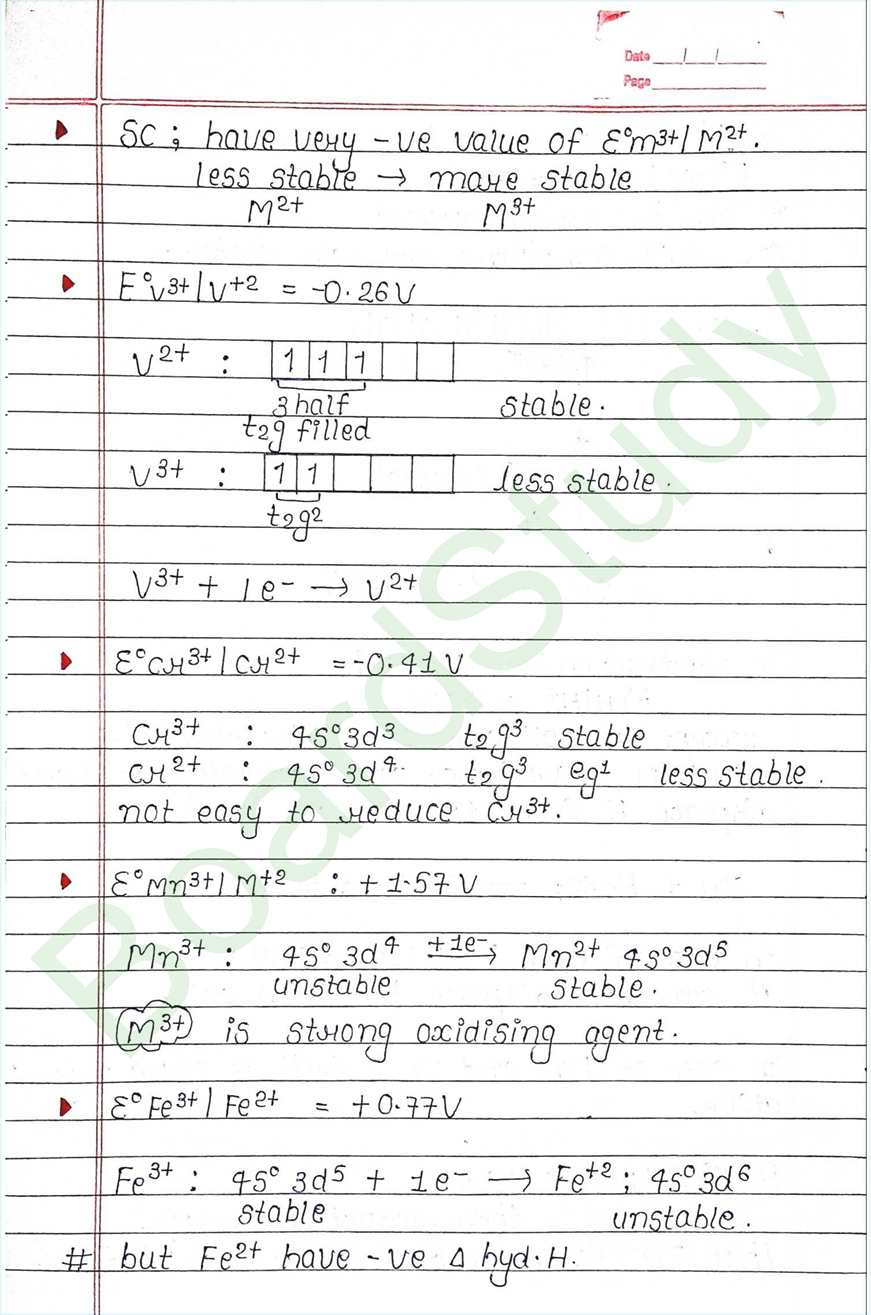 Date / /
Page
SC ; have very -ve value of E°m³⁺/M²⁺.
less stable → more stable
M²⁺ M³⁺
E°V³⁺/V⁺² = -0.26V
V²⁺ : 1 1 1
3 half stable.
t₂g filled
V³⁺ : 1 1 less stable.
t₂g²
V³⁺ + 1e⁻ → V²⁺
E°Cr³⁺/Cr²⁺ = -0.41V
Cr³⁺ : 4S⁰ 3d³ t₂g³ stable
Cr²⁺ : 4S⁰ 3d⁴ t₂g³ eg¹ less stable.
not easy to reduce Cr³⁺.
E°Mn³⁺/M⁺² : +1.57V
Mn³⁺ : 4S⁰ 3d⁴ +1e⁻→ Mn²⁺ 4S⁰3d⁵
unstable stable.
M³⁺ is strong oxidising agent.
E°Fe³⁺/Fe²⁺ = +0.77V
Fe³⁺ : 4S⁰ 3d⁵ + 1e⁻ → Fe⁺² ; 4S⁰3d⁶
stable unstable.
# but Fe²⁺ have -ve Δ hyd.H.
BoardStudy